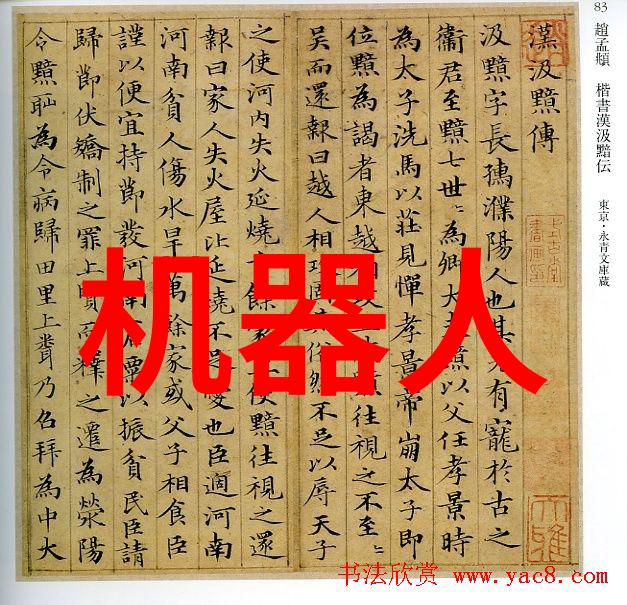 83 趙孟頫 楷書漢汲黯伝 東京・永青文庫蔵
漢汲黯傳
汲黯字長孺濮陽人也其有寵於古之
衛君至黯七世〻為卿大夫黯以父任孝景時
為太子洗馬以莊見憚孝景帝崩太子即
位黯為謁者東越相攻上黯往視之不至〻
吳而還報曰越人相攻固其俗然不足以辱天子
之使河內失火延燒餘家上使黯往視之還
報曰家人失火屋比延燒不足憂也臣適河南
河南貧人傷水旱萬餘家或父子相食臣
謹以便宜持節發河南倉粟以振貧民臣請
歸節伏矯制之罪上賢而釋之遷為滎陽
令黯恥為令病歸田里上聞乃召拜為中大
机器人
书法欣赏 www.yac8.com